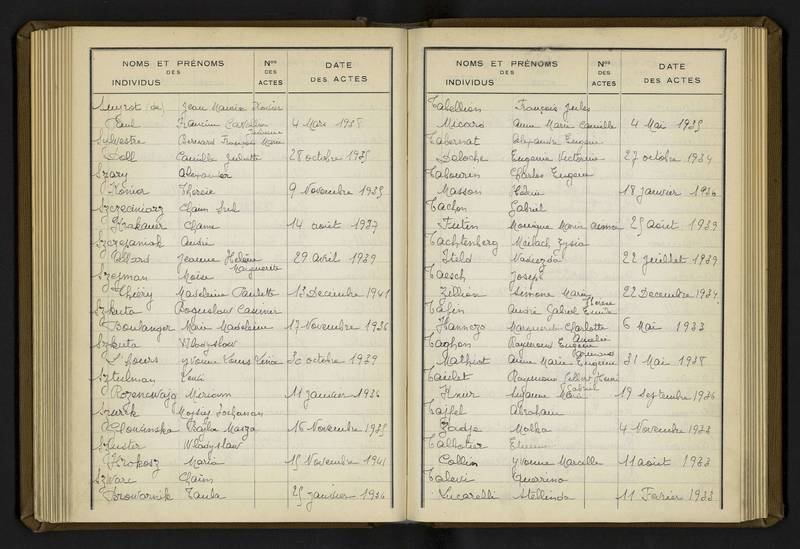 NOMS ET PRÉNOMS
DES
INDIVIDUS
Nos
DES
ACTES
DATE
DES ACTES
Seyrot (de) Jean Maurice Xavier
Francine Caroline
4 Mars 1938
Sylvestre Bernard François Marie
Doll Camille Juliette 28 octobre 1935
Szary Alexander
Konior Thérèse 9 Novembre 1935
Szczedniarz Chaim Srul
Krakauer Chana 14 août 1937
Szczesaniak André
Jeanne Hélène
Marguerite
29 avril 1939
Szejman Moïse
Thiéry Madeleine Paulette 13 Decembre 1941
Szkuta Boguslow Casimir
Boulanger Marie Madeleine 17 Novembre 1936
Szkuta Wladyslaw
Yvonne Louis 30 octobre 1939
Sztulman
Rozencwajg Miriam 11 janvier 1936
Szurek
Glowinska Bajla Masza 16 Novembre 1935
Szuster Wladyslaw
Krokosz Maria 15 Novembre 1941
Szwarc Chaim
Browarnik Tauba 25 janvier 1936
NOMS ET PRÉNOMS
DES
INDIVIDUS
Nos
DES
ACTES
DATE
DES ACTES
Tabellion François Jules
Micard Anne Marie Camille 4 Mai 1935
Tabernat Alexandre Eugène
Daloche Eugenie Victorine 27 octobre 1934
Tabouren Charles Eugène
Masson Hélène 18 janvier 1936
Tachon Gabriel
Futin Monique Marie 25 Août 1939
Tachtenberg Zysia
22 juillet 1939
Taesch Joseph
Zillion Simone Marie 22 Decembre 1934
Tafin André Gabriel Emile
Hannezo Marguerite Charlotte 6 Mai 1933
Taghon Raymond Eugène
Mathiot Anne Marie Eugenie 31 Mai 1938
Taiclet Raymond Gilbert Henri
Gabriel
Knur Suzanne Marie 19 Septembre 1936
Tajfel Abraham
Zadje Malka 4 Novembre 1933
Tallotier
Collin Yvonne Marcelle 11 août 1933
Talevi Guerrino
Lucarelli Stellinda 11 Fevrier 1933